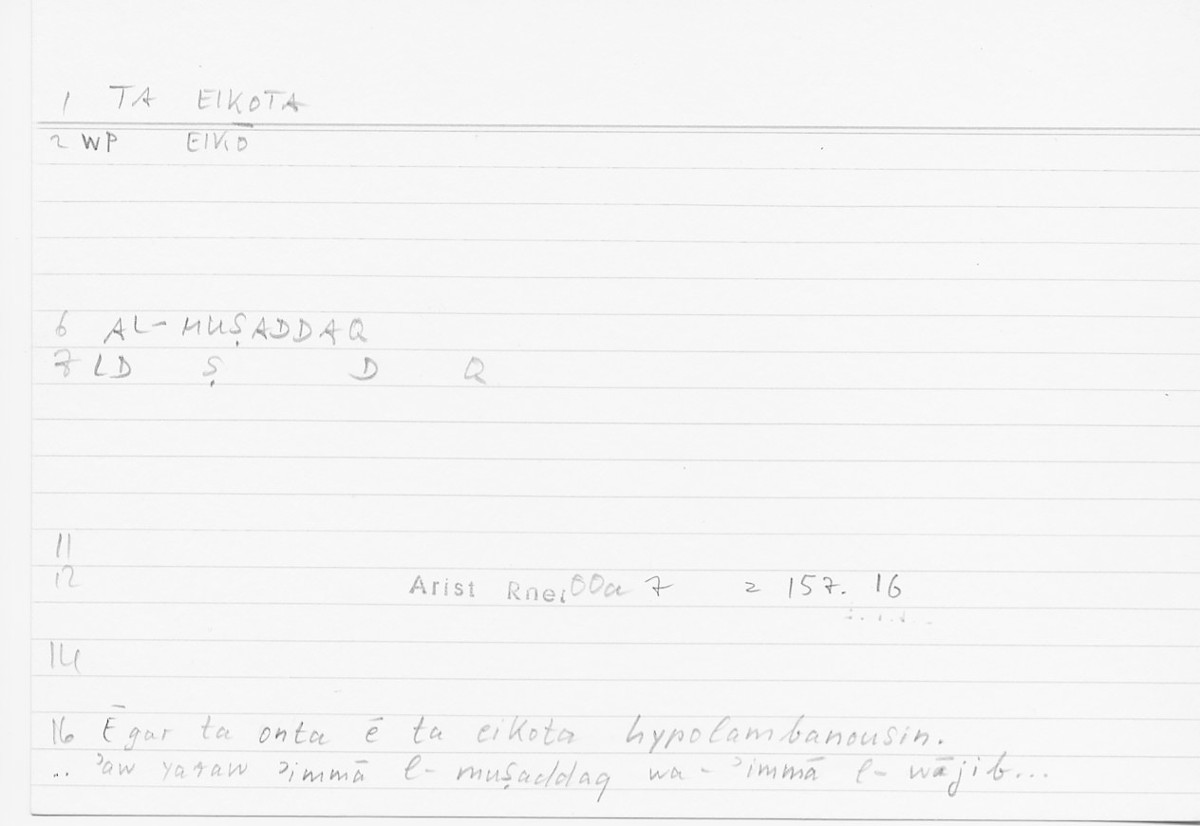 1 TA EIKOTA
2 WP EIKŌ
6 AL-MUṢADDAQ
7 LD Ṣ D Q
11
12 Arist Rhet 00a 7 = 157. 16
14
16 Ē gar ta onta ē ta eikota hypolambanousin.
.. ʾaw yaraw ʾimmā l-muṣaddaq wa-ʾimmā l-wājib...